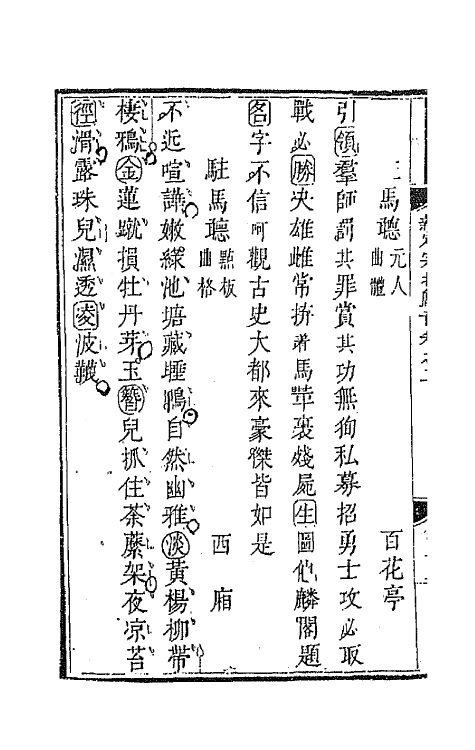 馬聽 元人曲體 百花亭
引領羣師罰其罪賞其功無狥私募招勇士攻必取
戰必勝决雄雌常拚着馬革裹殘屍生圖個麟閣題
名字不信呵觀古史大都來豪傑皆如是
駐馬聽 點板曲格 西廂
不近喧譁嫩綠池塘藏睡鴨自然幽雅淡黃楊柳帶
棲鴉金蓮蹴損牡丹芽玉簪兒抓住荼蘼架夜凉苔
徑滑露珠兒濕透凌波韈